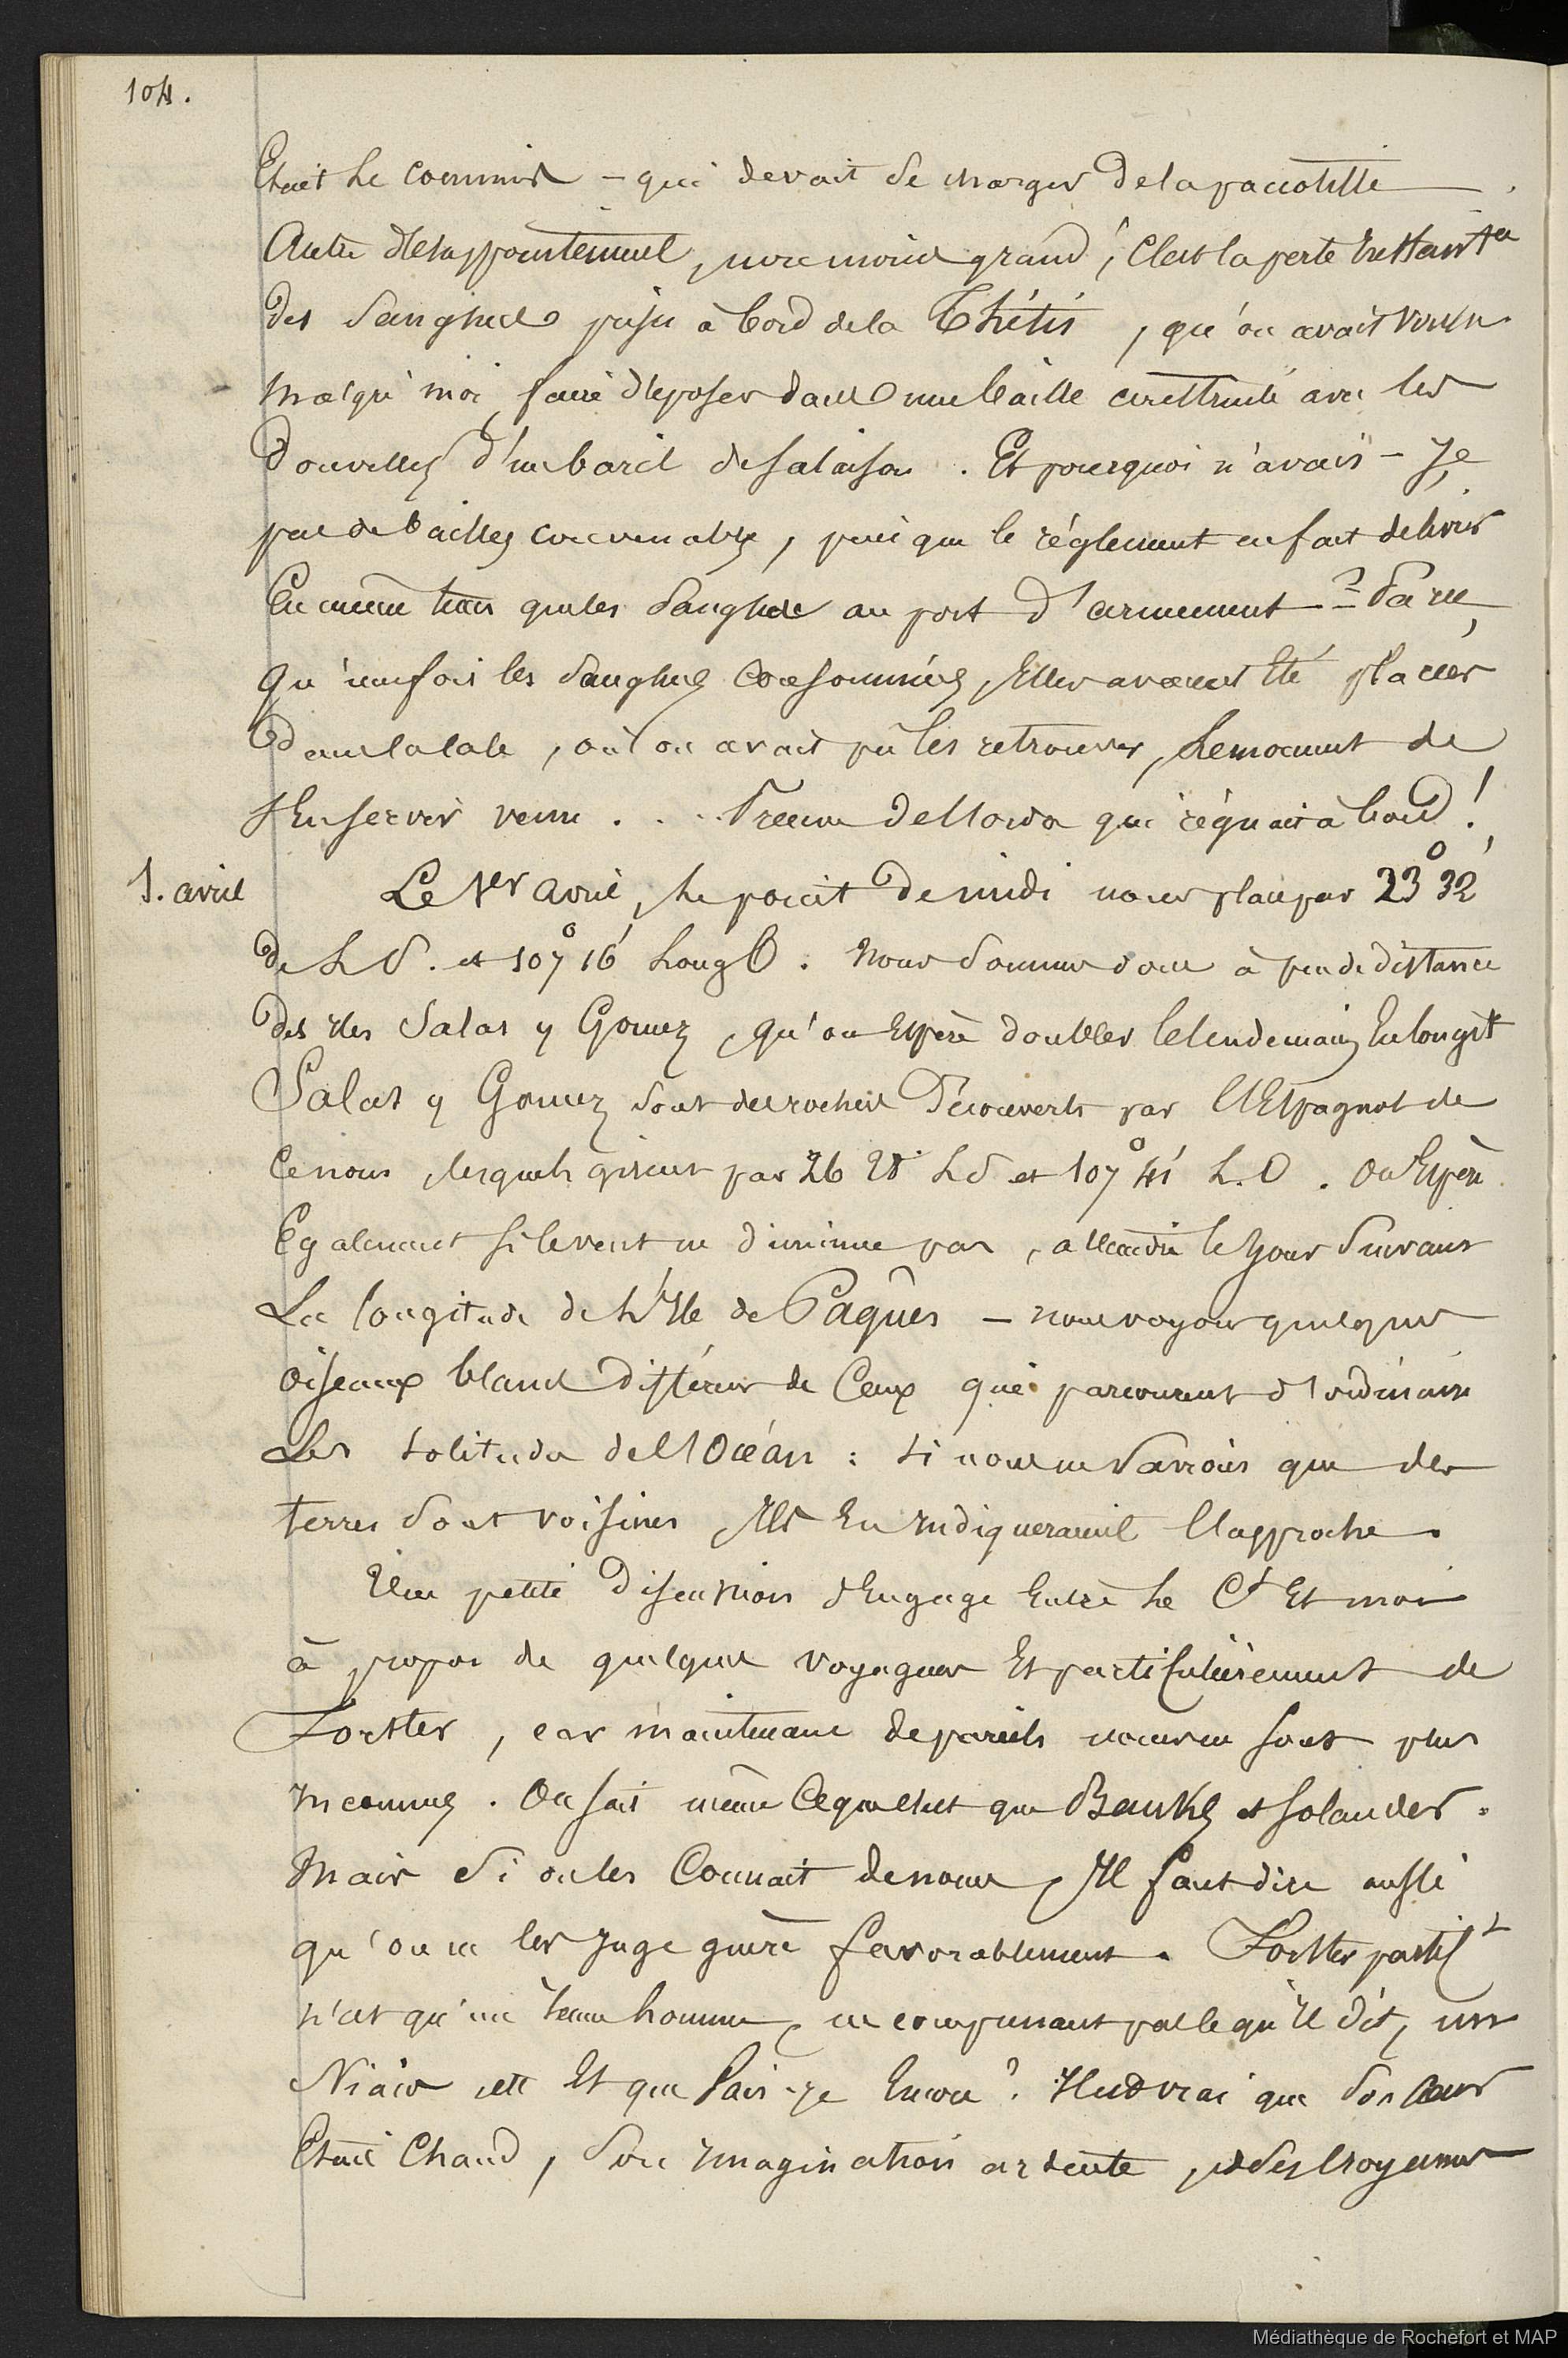 104.
Etait le commis – qui devait se charger de la pacotille.
Autre désappointement, non moins grand, c'est la perte instant.ée
des sangsues prises à bord de la Thétis, qu'on avait voulu
malgré moi faire déposer dans une baille construite avec les
douvelles d'un baril de salaison. Et pourquoi n'avais-je
pas de bailles convenables, puisque le réglement en fait délivrer
En même tems que les sangsues au port d'armement ? – Parce
qu'une fois les sangsues consommées, Elles avaient été placées
dans la cale, où l'on avait pu les retrouver, le moment de
s'En servir venu . . . Preuve de l'ordre qui régnait à bord !
1. avril
Le 1er avril, le point de midi nous place par 23° 32'
de L S. et 107° 16' Long O. Nous sommes donc à peu de distance
des Iles Salas y Gomez, qu'on Espère doubler le lendemain En longit
Salas y Gomez sont des rochers découverts par l'Espagnol de
ce nom, lesquels gisent par 26 28' L S et 107° 41' L. O. On Espère
Egalement si le vent ne diminue pas, atteindre le jour suivant
La longitude de L'Ile de Pâques – nous voyons quelques
oiseaux blancs différens de ceux qui parcourent d'ordinaire
Les solitudes de l'Océan : si nous ne savions que des
terres sont voisines Ils En Indiqueraient l'approche.
Une petite discussion s'Engage Entre le Ct Et moi
à propos de quelques voyageurs Et particulièrement de
Forster, car maintenant de pareils noms ne sont plus
Inconnus. On sait même ce que c'est que Banks et Solander.
Mais si on les connait de nom, Il faut dire aussi
qu'on ne les Juge guère favorablement. Forster partict
n'est qu'un jeune homme, ne comprenant pas ce qu'Il dit, un
Niais etc Et que sais-je Encore ? Il est vrai que son cœur
Etait chaud, son Imagination ardente, et ses croyances